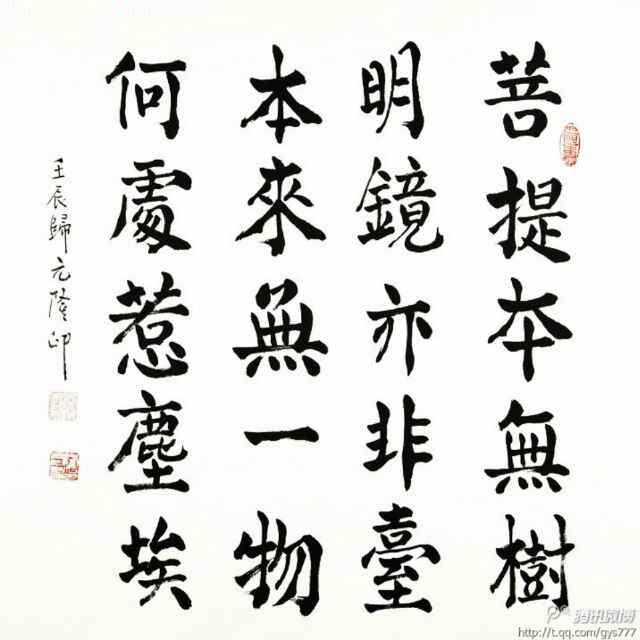 菩提夲無樹
明鏡亦非臺
本來無一物
何處惹塵埃
壬辰歸元隆印
腾讯微博
http://t.qq.com/gys777